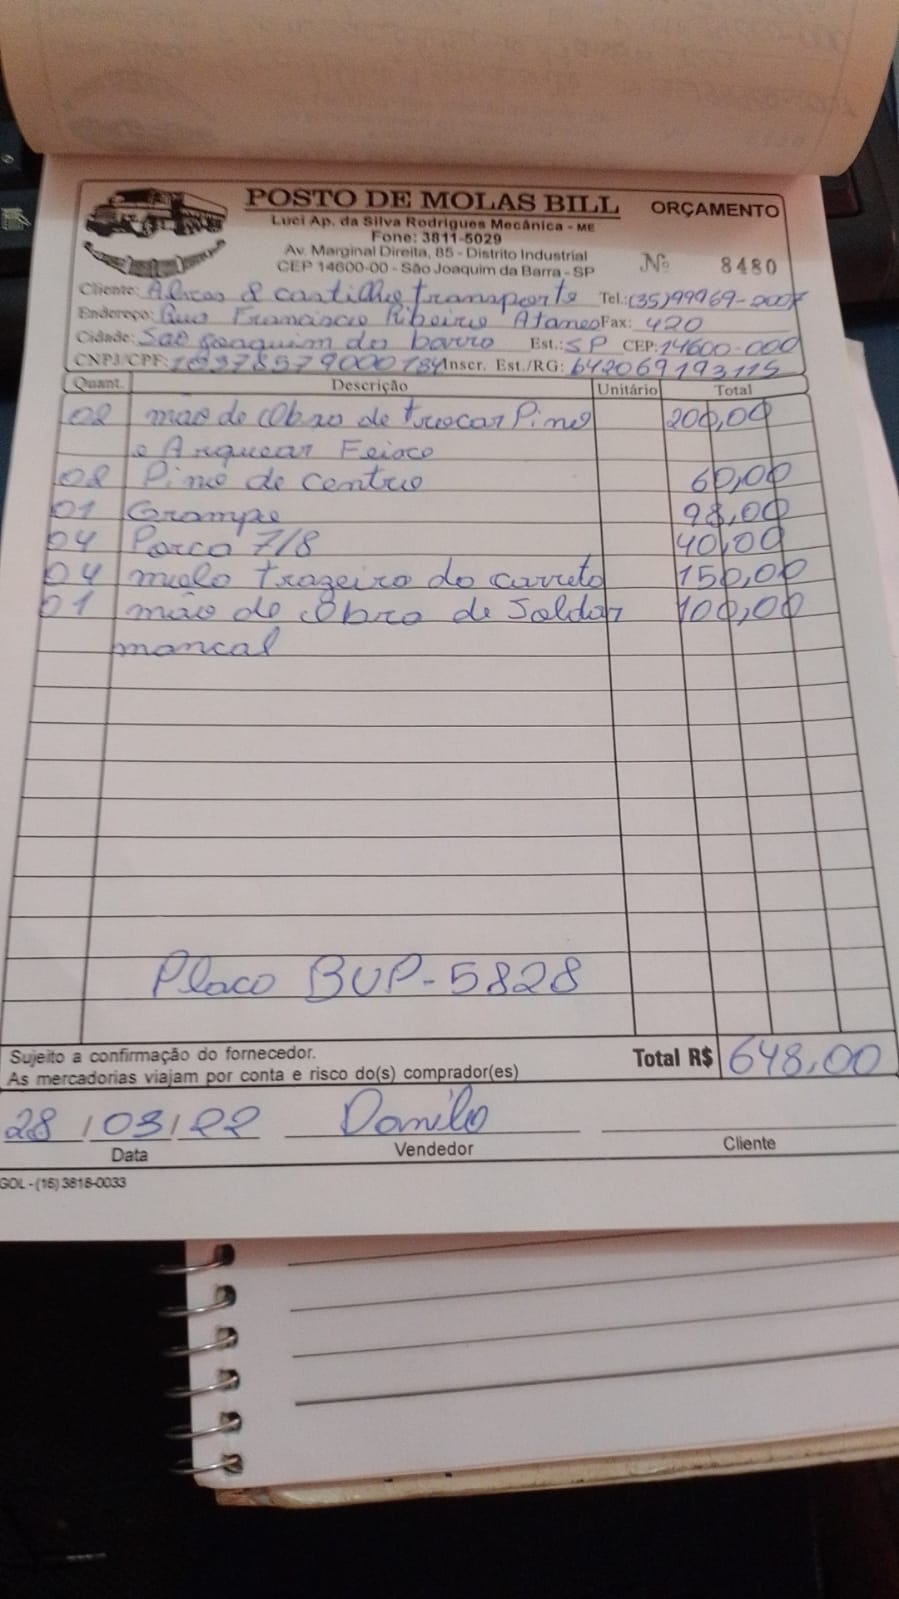 POSTO DE MOLAS BILL ORÇAMENTO
Luci Ap. da Silva Rodrigues Mecânica - ME
Fone: 3811-5029
Av. Marginal Direita, 85 - Distrito Industrial
CEP 14600-00 - São Joaquim da Barra - SP Nº 8480
Cliente: & castilho transporte Tel.:(35)99969-2007
Endereço: Rua Francisco Ribeiro Fax: 420
Cidade: São Joaquim da barra Est.: SP CEP: 14600-000
CNPJ/CPF: Inscr. Est./RG: 642069193115
Quant. Descrição Unitário Total
02 mão de Obra de trocar Pino 200,00
e Arquear Feixo
02 Pino de centro 60,00
01 Grampo 98,00
04 Porca 7/8 40,00
04 trazeiro do carreto 150,00
01 mão de Obra de Soldar 100,00
mancal
Placa BUP-5828
Sujeito a confirmação do fornecedor.
As mercadorias viajam por conta e risco do(s) comprador(es)
Total R$ 648,00
28 / 03 / 22 Danilo
Data Vendedor Cliente
GOL - (16) 3818-0033